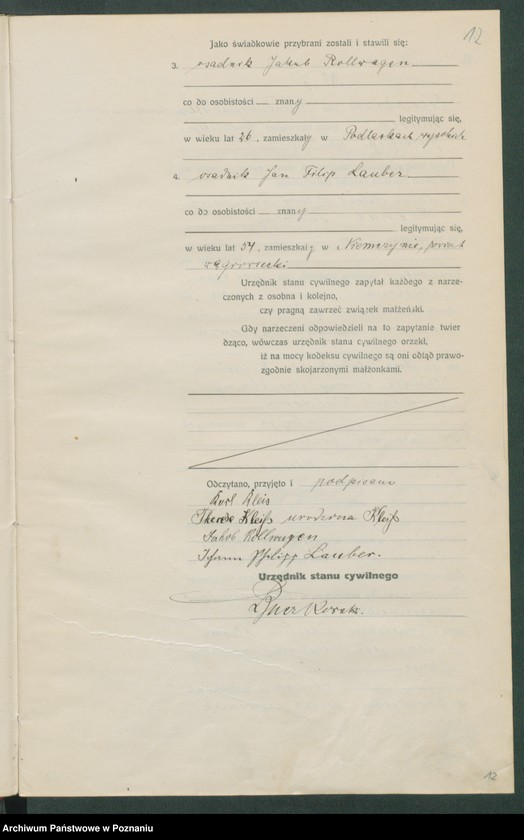 12
Jako świadkowie przybrani zostali i stawili się:
3. osadnik Jakub Rollwagen
co do osobistości znany
legitymując się,
w wieku lat 26, zamieszkały w Podlaskach wysokich
4. osadnik Jan Filip Lauber
co do osobistości znany
legitymując się,
w wieku lat 54, zamieszkały w Niemczynie, powiat
wągrowiecki
Urzędnik stanu cywilnego zapytał każdego z narze-
czonych z osobna i kolejno,
czy pragną zawrzeć związek małżeński.
Gdy narzeczeni odpowiedzieli na to zapytanie twier
dząco, wówczas urzędnik stanu cywilnego orzekł,
iż na mocy kodeksu cywilnego są oni odtąd prawo-
zgodnie skojarzonymi małżonkami.
Odczytano, przyjęto i podpisano
Karl Kleis
Kleiß urodzona Kleiß
Jakob Rollwagen
Johann Philipp Lauber.
Urzędnik stanu cywilnego
12
Archiwum Państwowe w Poznaniu